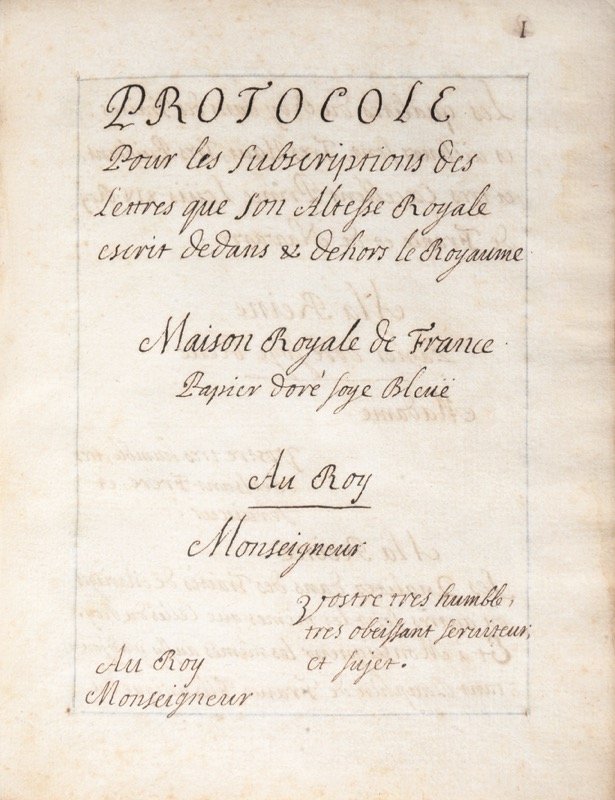 1
PROTOCOLE
Pour les Subscriptions des
Lettres que Son Altesse Royale
escrit dedans & dehors le Royaume
Maison Royale de France.
Papier doré soye Bleuë
Au Roy
Monseigneur
Vostre tres humble,
tres obeissant seruiteur,
et sujet.
Au Roy
Monseigneur